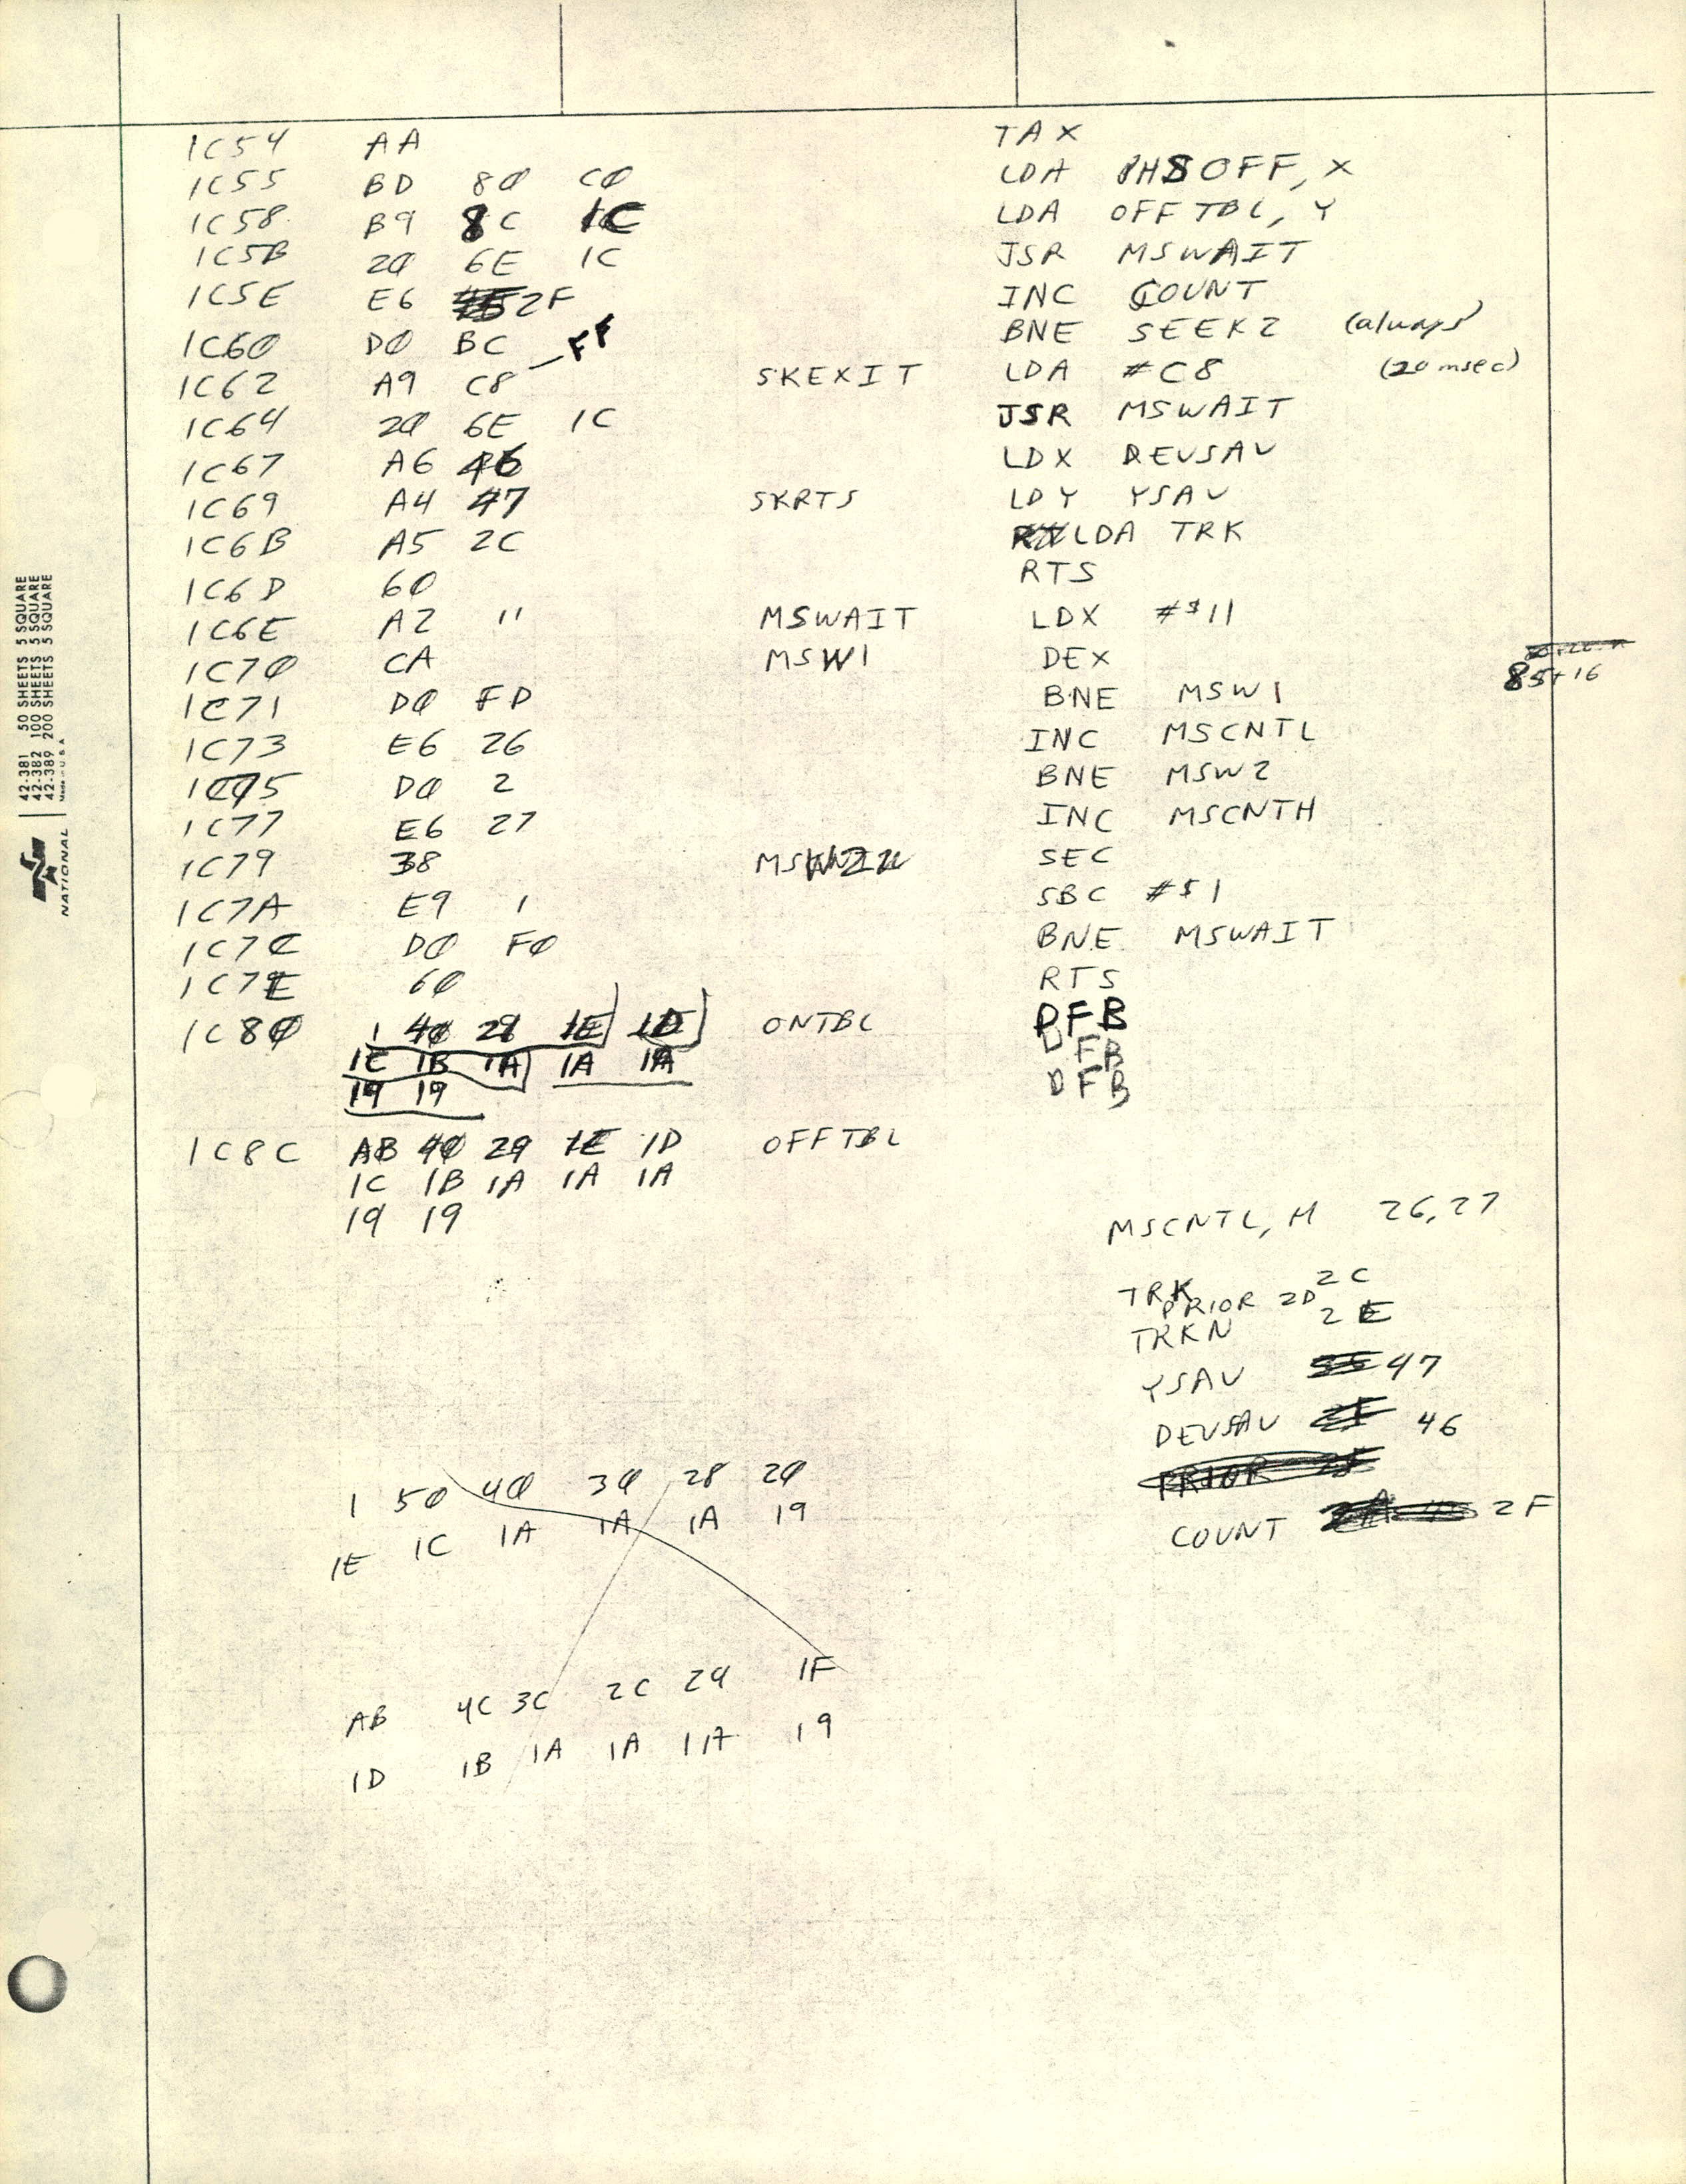 1C54 AA TAX
1C55 BD 80 C0 LDA PHSOFF, X
1C58 B9 8C 1C LDA OFFTBL, Y
1C5B 20 6E 1C JSR MSWAIT
1C5E E6 2F INC COUNT
1C60 D0 BC BNE SEEK2 (always)
FF
1C62 A9 C8 SKEXIT LDA #C8 (20 msec)
1C64 20 6E 1C JSR MSWAIT
1C67 A6 46 LDX DEVSAV
1C69 A4 47 SKRTS LDY YSAV
1C6B A5 2C LDA TRK
1C6D 60 RTS
1C6E A2 11 MSWAIT LDX #$11
1C70 CA MSW1 DEX
85+16
1C71 D0 FD BNE MSW1
1C73 E6 26 INC MSCNTL
1C75 D0 2 BNE MSW2
1C77 E6 27 INC MSCNTH
1C79 38 SEC
1C7A E9 1 SBC #$1
1C7C D0 F0 BNE MSWAIT
1C7E 60 RTS
1C80 1 40 28 1E 1D ONTBL DFB
1C 1B 1A 1A 1A DFB
19 19 DFB
1C8C AB 40 29 1E 1D OFFTBL
1C 1B 1A 1A 1A
19 19
MSCNTL, H 26, 27
TRK 2C
PRIOR 2D
TRKN 2E
YSAV 47
DEVSAV 46
PRIOR
COUNT 2F
1 50 40 30 28 20
1E 1C 1A 1A 1A 19
AB 4C 3C 2C 24 1F
1D 1B 1A 1A 1A 19
42-381 50 SHEETS 5 SQUARE
42-382 100 SHEETS 5 SQUARE
42-389 200 SHEETS 5 SQUARE
Made in U S A
NATIONAL